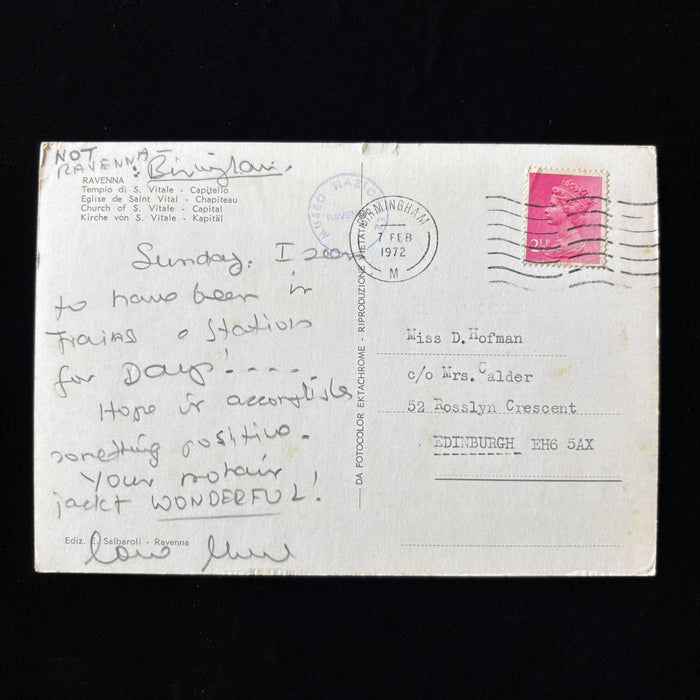 NOT
RAVENNA - : Birmingham.
RAVENNA
Tempio di S. Vitale - Capitello
Eglise de Saint Vital - Chapiteau
Church of S. Vitale - Capital
Kirche von S. Vitale - Kapitäl
MUSEO NAZIO
RAVENNA
BIRMINGHAM
7 FEB
1972
M
2½P
Sunday. I seem
to have been in
Trains & Stations
for Days! - - - -
Hope it accomplishes
something positive.
Your
jacket WONDERFUL!
Ediz. E. Salbaroli - Ravenna
DA FOTOCOLOR EKTACHROME - RIPRODUZIONE VIETATA
Miss D. Hofman
c/o Mrs. Calder
52 Rosslyn Crescent
EDINBURGH EH6 5AX